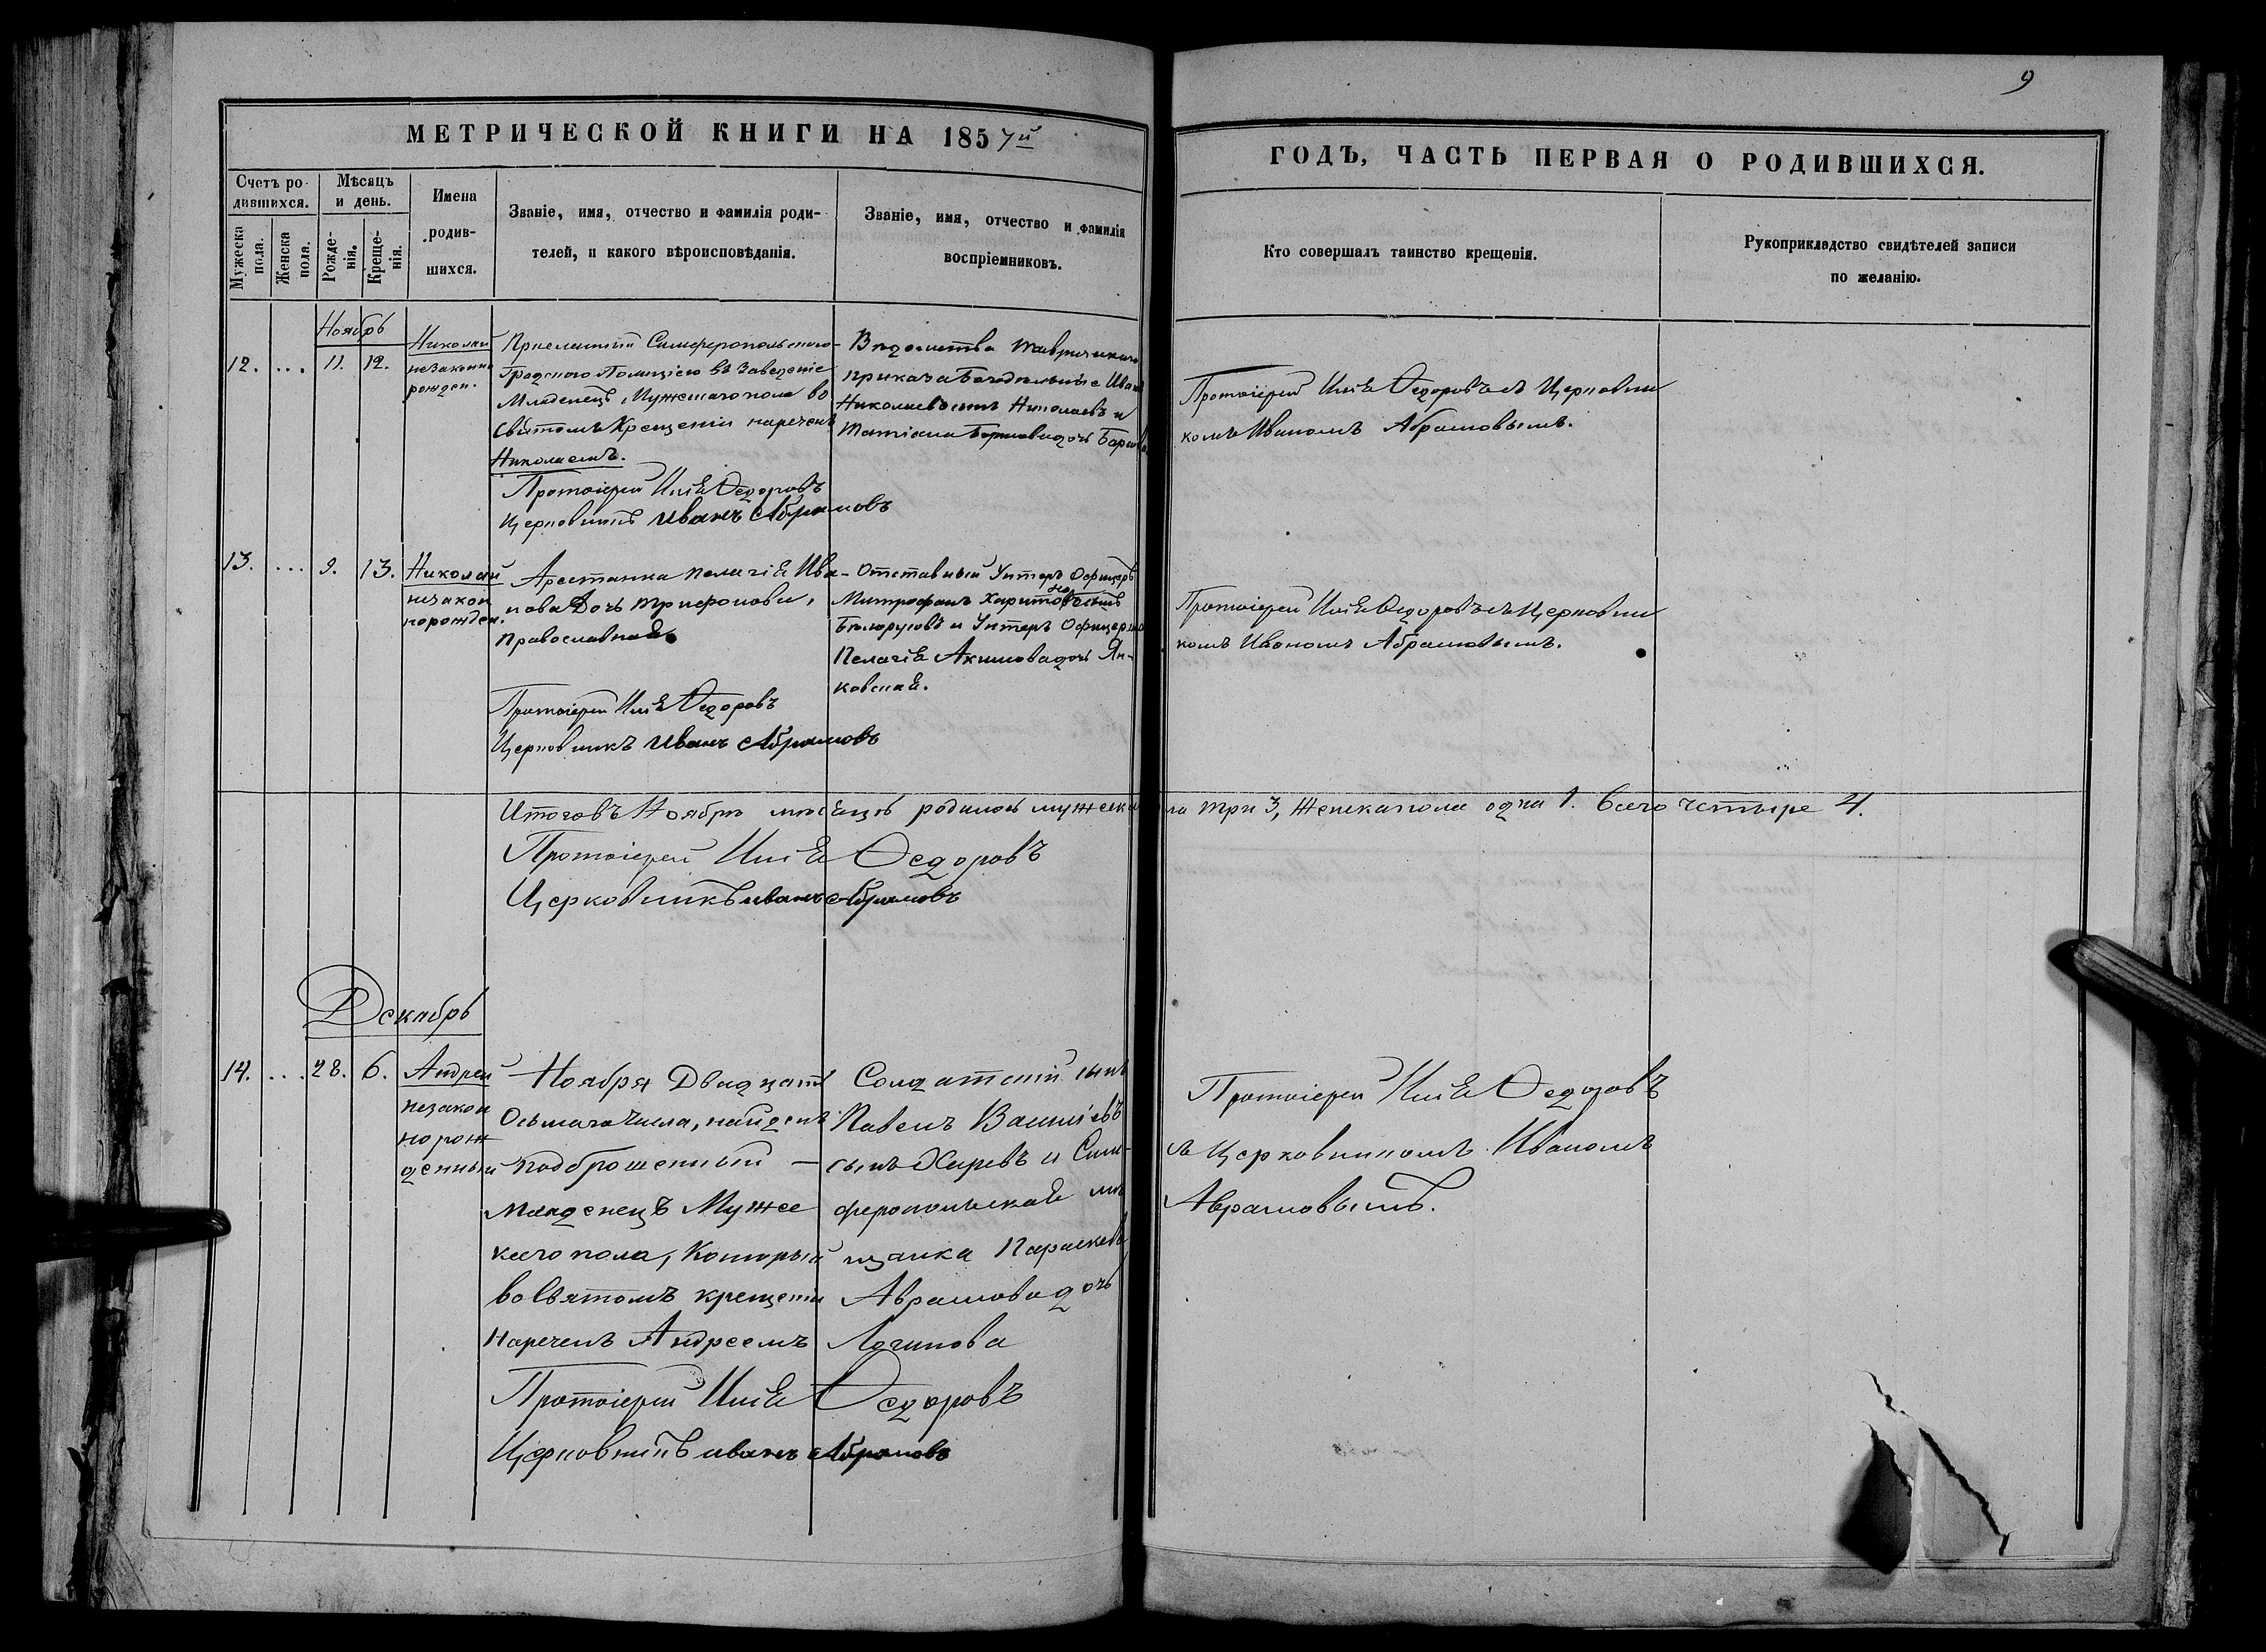 9
МЕТРИЧЕСКОЙ КНИГИ НА 1857й
ГОДЪ, ЧАСТЬ ПЕРВАЯ О РОДИВШИХСЯ.
Счетъ ро-
дившихся.
Мужеска
пола.
Женска
пола.
Мѣсяцъ
и день.
Рожде-
нія.
Креще-
нія.
Имена
родив-
шихся.
Званіе, имя, отчество и фамилія роди-
телей, и какого вѣроисповѣданія.
Званіе, имя, отчество и фамилія
воспріемниковъ.
Кто совершалъ таинство крещенія.
Рукоприкладство свидѣтелей записи
по желанію.
Ноябрь
12. ... 11. 12.
Николай
незаконно
рожден.
Присланный Симферопольскою
Градскою Полициею въ Заведеніе
Младенецъ, Мужескаго пола во
Святомъ Крещеніи нареченъ
Николаемъ.
Протоіерей Илія Ѳедоровъ
Церковникъ Иванъ Абрамовъ
Вѣдомства Таврическаго
приказа Богодѣльные Иванъ
Николаевъ сынъ Николаевъ и
Татіана дочь
Протоіерей Илія Ѳедоровъ съ Церковни
комъ Иваномъ Абрамовымъ.
13. ... 9. 13.
Николай
незакон
норожден.
Арестанка Пелагія Ива-
нова Дочь Трифонова,
Православная.
Протоіерей Илія Ѳедоровъ
Церковникъ Иванъ Абрамовъ
Отставный Унтеръ Офицеръ
Митрофанъ Харитоновъ сынъ
Бѣлорусовъ и Унтеръ Офицерша
Пелагія Акимова дочь Ян-
ковская.
Протоіерей Илія Ѳедоровъ съ Церковни
комъ Иваномъ Абрамовымъ.
Итого въ Ноябрѣ мѣсяцѣ родилось мужеска пола три 3, Женска пола одна 1. Всего четыре 4.
Протоіерей Илія Ѳедоровъ
Церковникъ Иванъ Абрамовъ
Декабрь
14. ... 28. 6.
Андрей
незакон
норож
денный
Ноября Двадцать
Осьмаго Числа, найденъ
подброшенный —
младенецъ Мужес
каго пола, Который
во Святомъ крещеніи
Нареченъ Андреемъ
Протоіерей Илія Ѳедоровъ
Церковникъ Иванъ Абрамовъ
Солдатскій сынъ
Павелъ Васильевъ
сынъ и Сим-
феропольская мѣ
щанка Параскева
Аврамова дочь
Логинова
Протоіерей Илія Ѳедоровъ
съ Церковникомъ Иваномъ
Аврамовымъ.